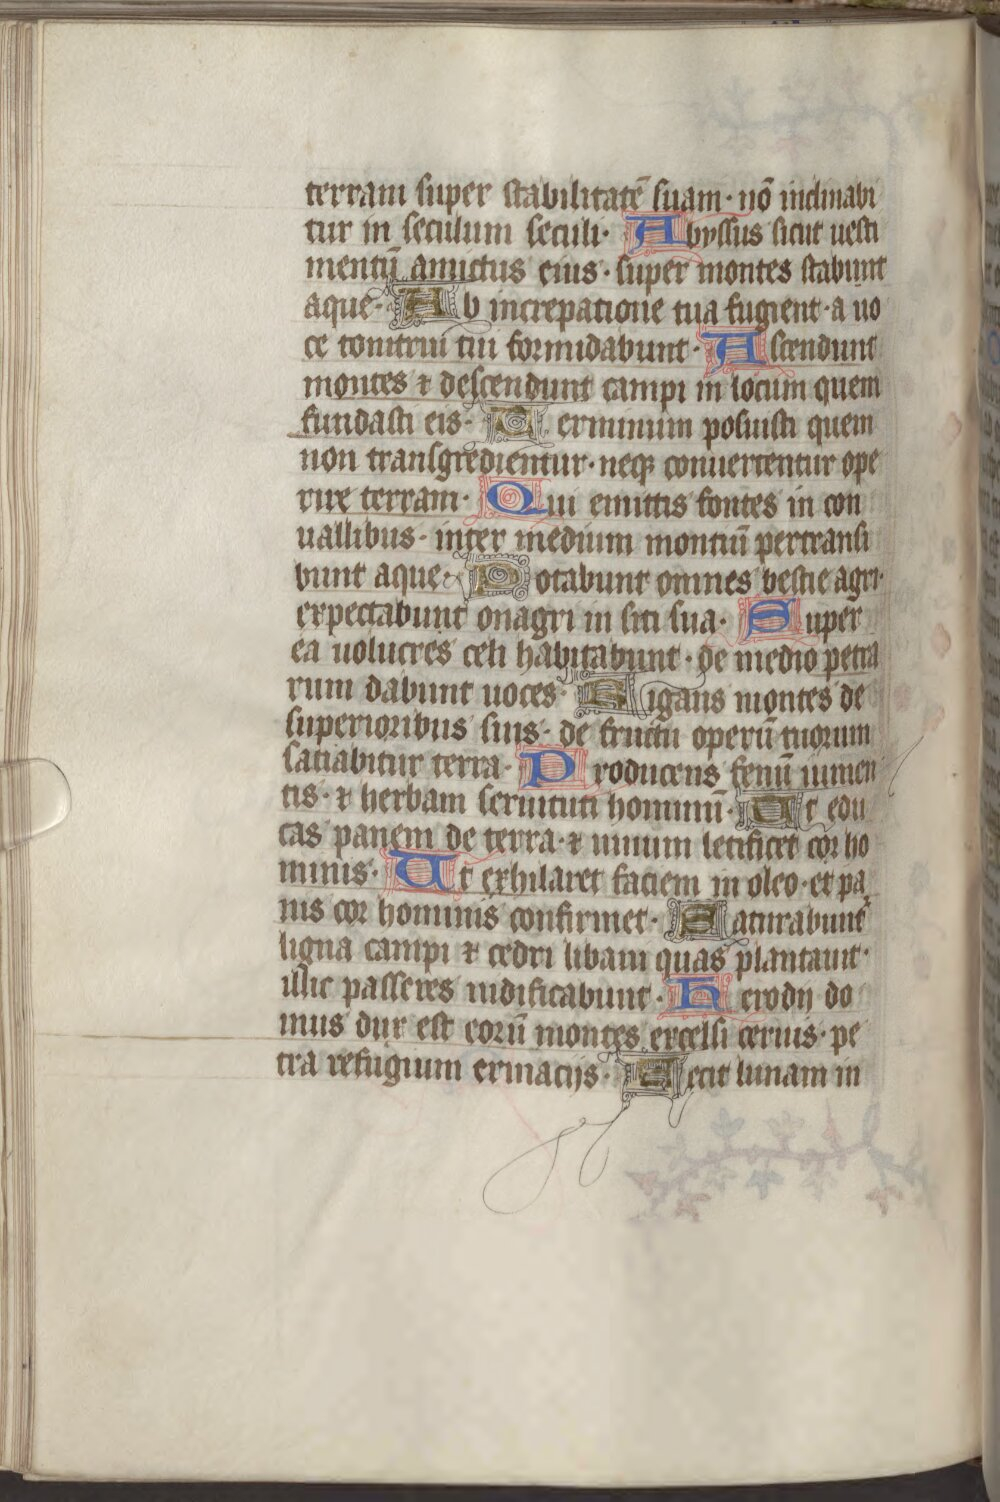 terram super stabilitatē suam · nō inclinabi
tur in seculum seculi · Abyssus sicut uesti
mentū amictus eius · super montes stabunt
aque · Ab increpatione tua fugient · a uo
ce tonitrui tui formidabunt · Ascendunt
montes ⁊ descendunt campi in locum quem
fundasti eis · Terminum posuisti quem
non transgredientur · neqꝫ conuertentur ope
rire terram · Qui emittis fontes in con
uallibus · inter medium montiū pertransi
bunt aque · Potabunt omnes bestie agri ·
expectabunt onagri in siti sua · Super
ea uolucres celi habitabunt · de medio petra
rum dabunt uoces · Rigans montes de
superioribus suis · de fructu operū tuorum
satiabitur terra · Producens fenū iumen
tis · ⁊ herbam seruituti hominū · Ut edu
cas panem de terra · ⁊ uinum letificet cor ho
minis · Ut exhilaret faciem in oleo · et pa
nis cor hominis confirmet · Saturabunt
ligna campi ⁊ cedri libani quas plantauit ·
illic passeres nidificabunt · Herodij do
mus dux est eorū montes excelsi ceruis · pe
tra refugium erinacijs · Fecit lunam in